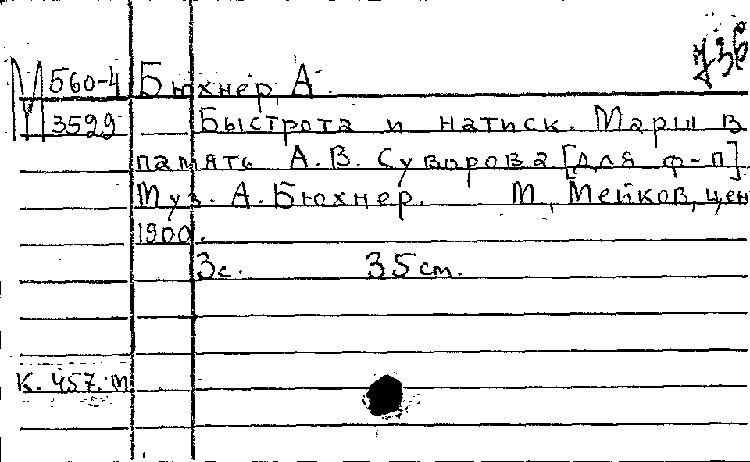 736
М 560-4 Бюхнер, А.
3599 Быстрота и натиск. Марш в
память А.В. Суворова [для ф-п]
Муз. А. Бюхнер. М., Мейков, ценз.
1900.
3с. 35 cm.
К. 457. т